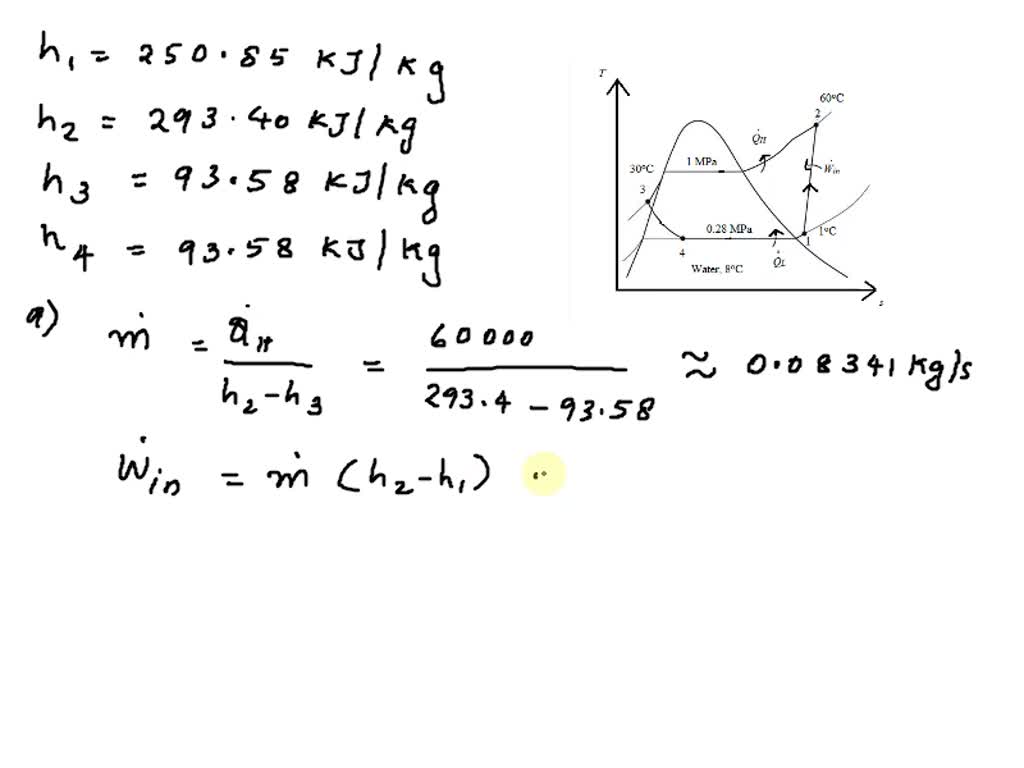 h₁ = 250.85 KJ/kg
h₂ = 293.40 KJ/kg
h₃ = 93.58 KJ/kg
h₄ = 93.58 KJ/kg
T
60°C
2
Q̇H
1 MPa
Ẇin
30°C
3
0.28 MPa
1
1°C
4
Q̇L
Water, 8°C
s
a) ṁ = Q̇H / (h₂-h₃) = 60000 / (293.4 - 93.58) ≈ 0.08341 Kg/s
Ẇin = ṁ (h₂-h₁)